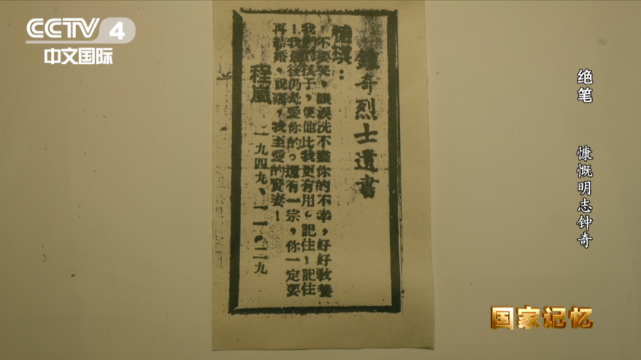 CCTV 4
中文国际
绝笔 慷慨明志钟奇
鍾奇烈士遺書
琪：
不要哭，眼淚洗不盡你的不幸，好好教養
我們的孩子，使他比我更有用。記住！記住
！我最後仍是愛你的。還有一宗，你一定要
再結婚，祝福，我至愛的賢妻！
程嵐
一九四九、一一、二九
国家记忆